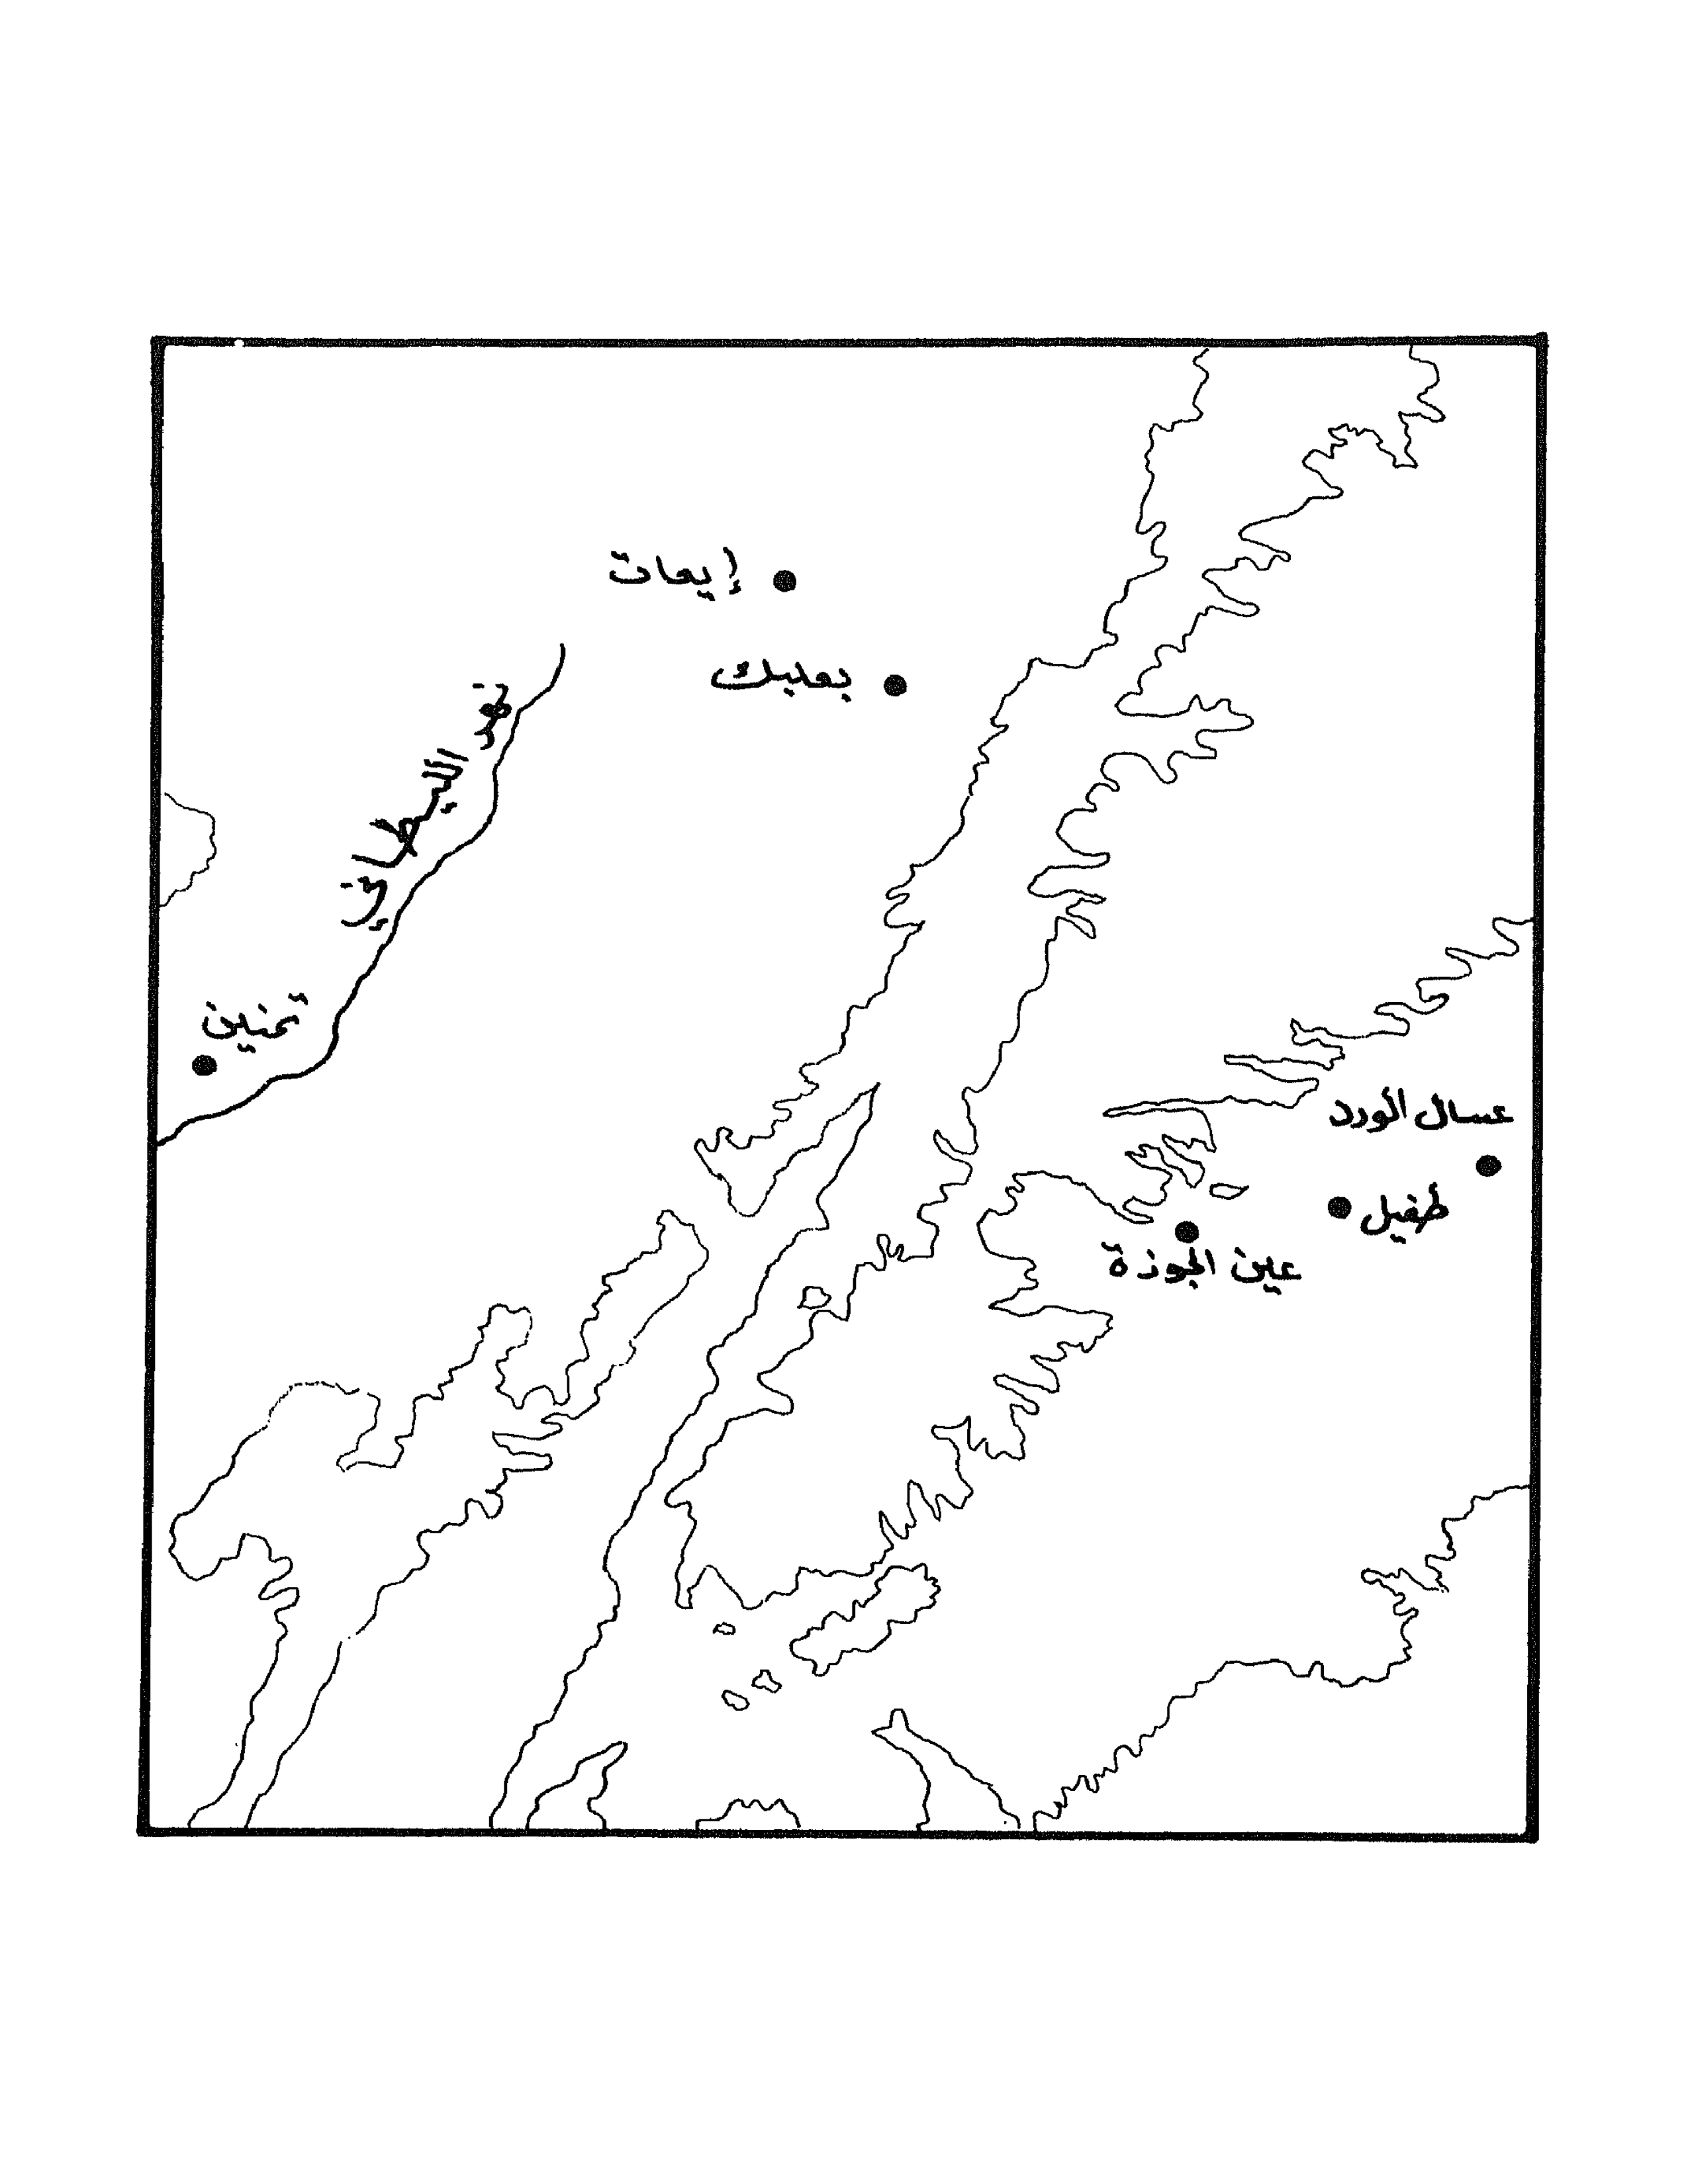 إيعات
بعلبك
نهر الليطاني
تمنين
عسال الورد
طفيل
عين الجوزة